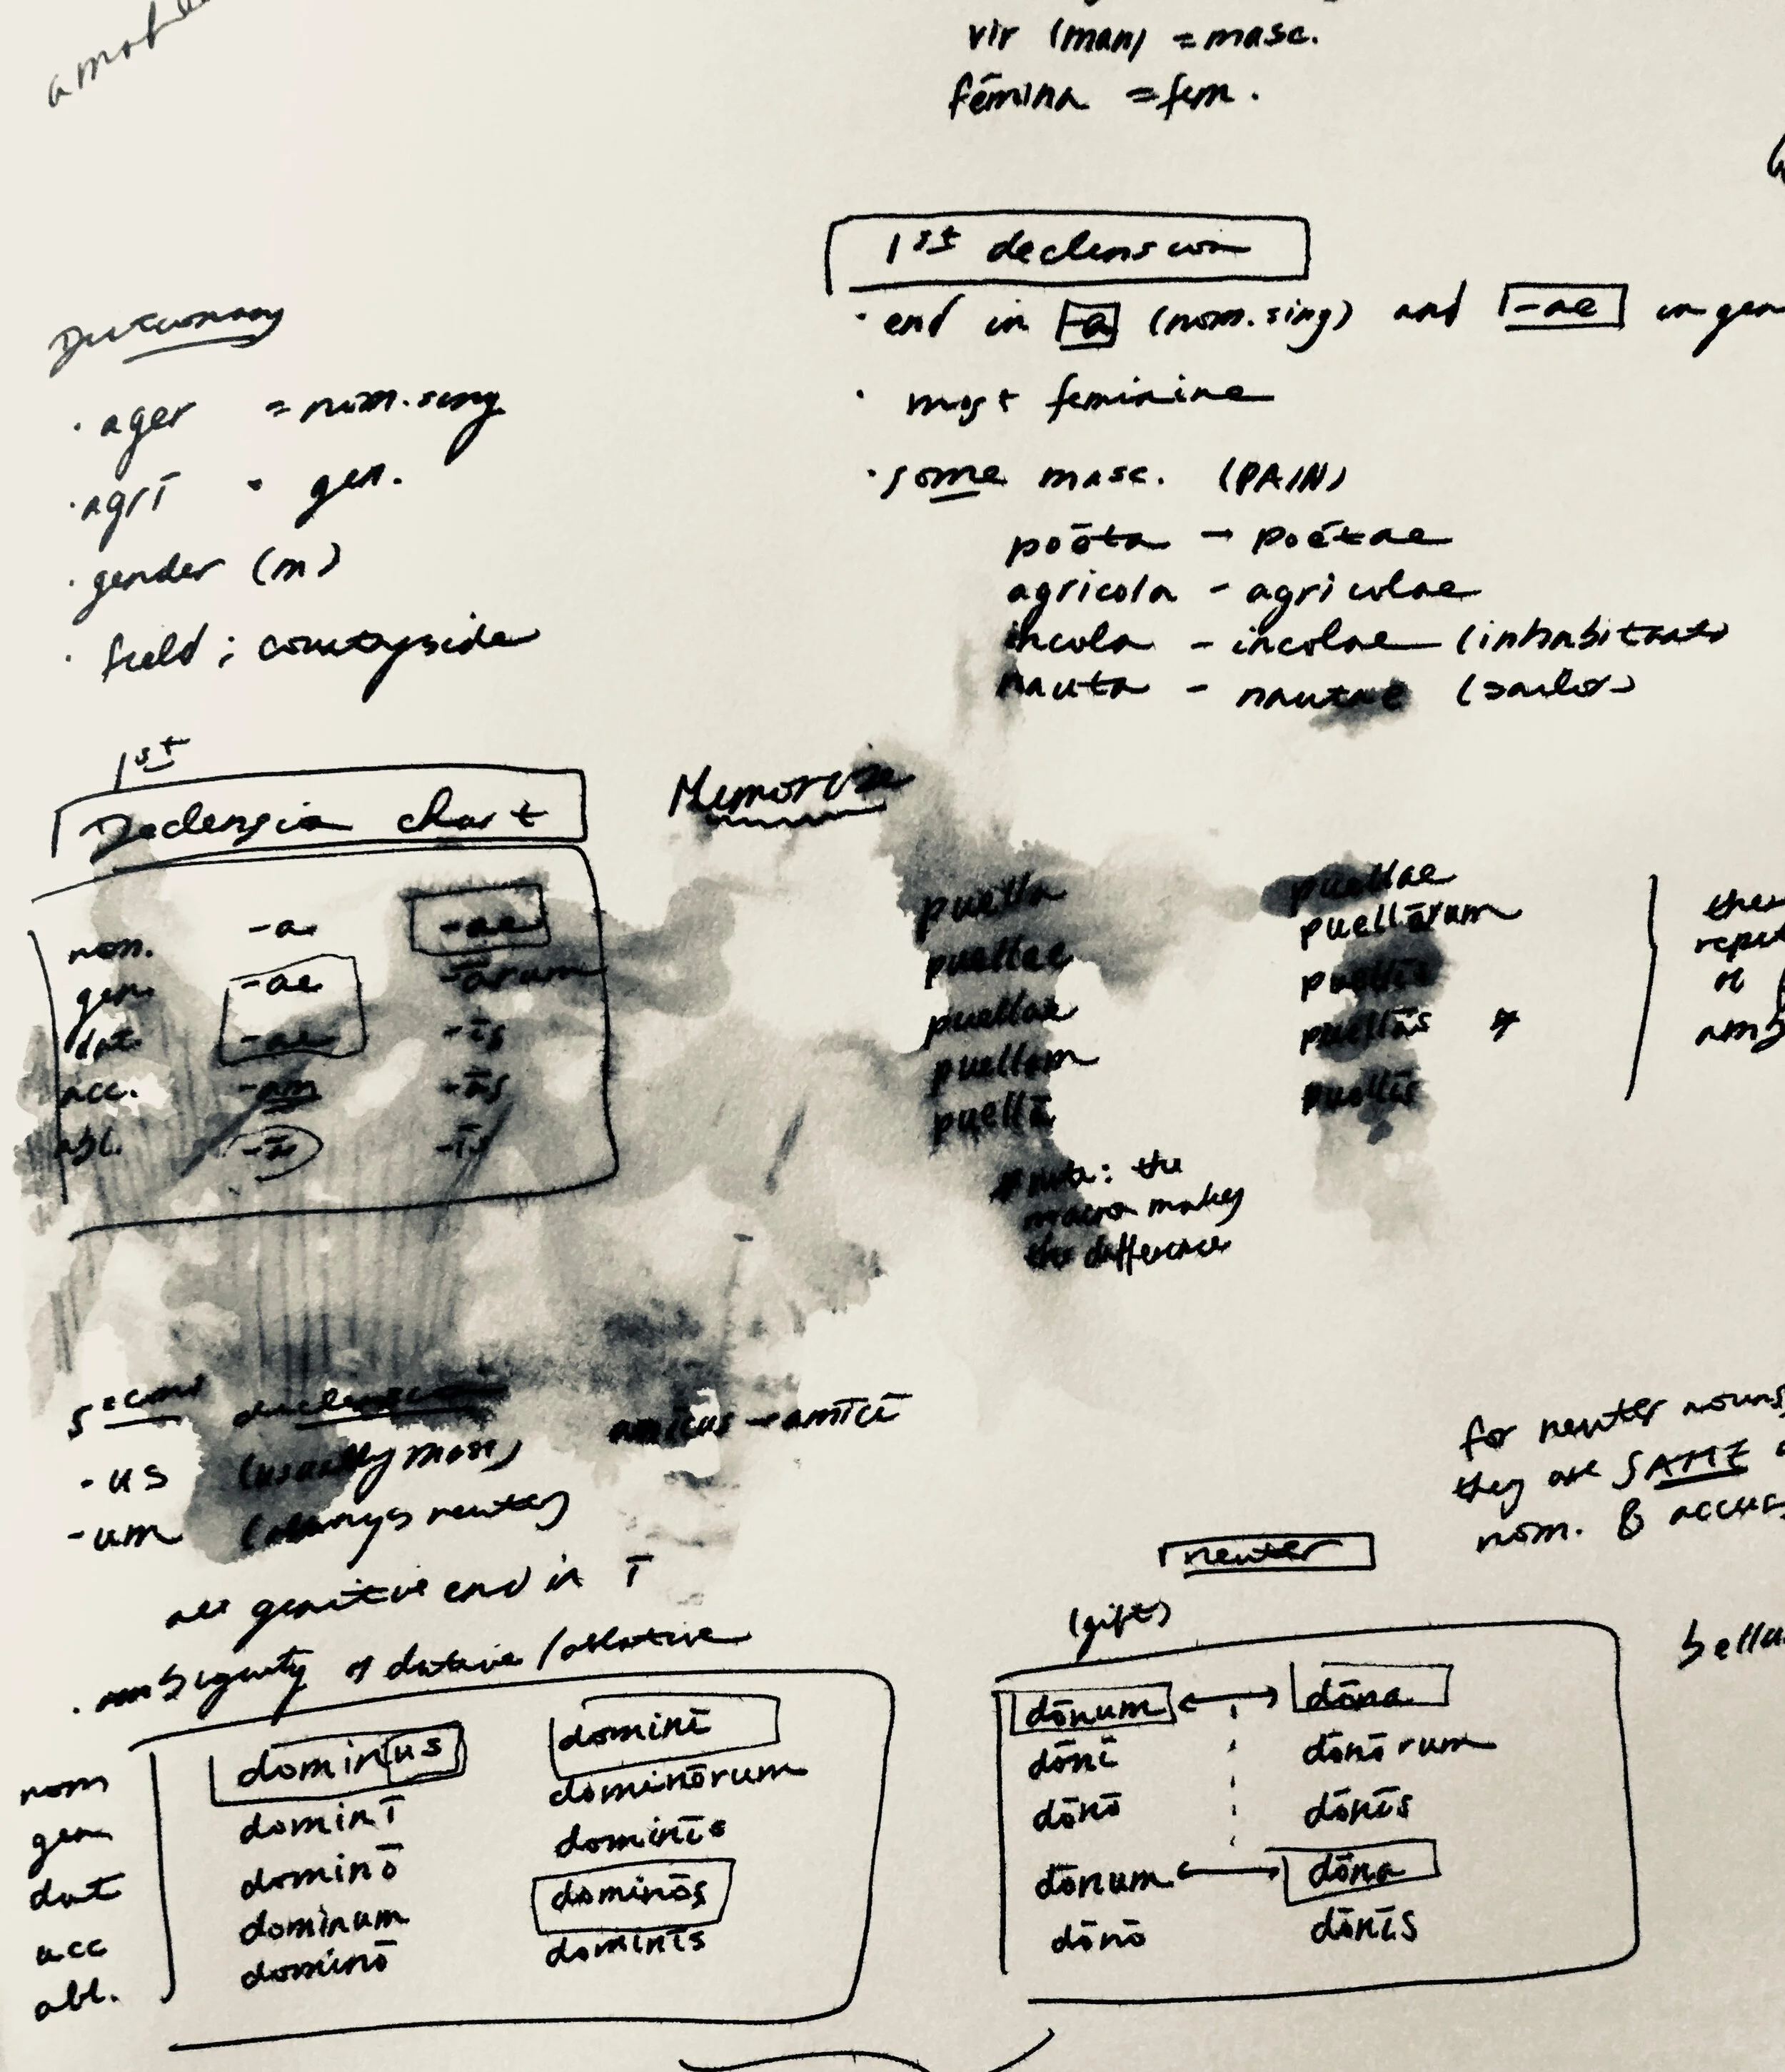 vir (man) = masc.
fēmina = fem.
1st declension
· end in -a (nom. sing) and -ae in gen
· most feminine
· some masc. (PAIN)
poēta - poētae
agricola - agricolae
incola - incolae (inhabitant)
nauta - nautae (sailor)
Dictionary
· ager = nom. sing
· agrī = gen.
· gender (m)
· field; countryside
1st
Declension chart
Memorize
nom. -a -ae
gen. -ae -ārum
dat. -ae -īs
acc. -am -ās
abl. -ā -īs
puella puellae
puellae puellārum
puellae puellīs
puellam puellās *
puellā puellīs
* note: the
macron makes
the difference
the
or
amb
second declension
-us (usually masc) amīcus - amīcī
-um (always neuter)
all genitive end in ī
· ambiguity of dative / ablative
nom dominus dominī
gen dominī dominōrum
dat dominō dominīs
acc dominum dominōs
abl. dominō dominīs
for neuter nouns,
they are SAME
nom. & accus
neuter
(gift)
dōnum dōna
dōnī dōnōrum
dōnō dōnīs
dōnum dōna
dōnō dōnīs
bellu